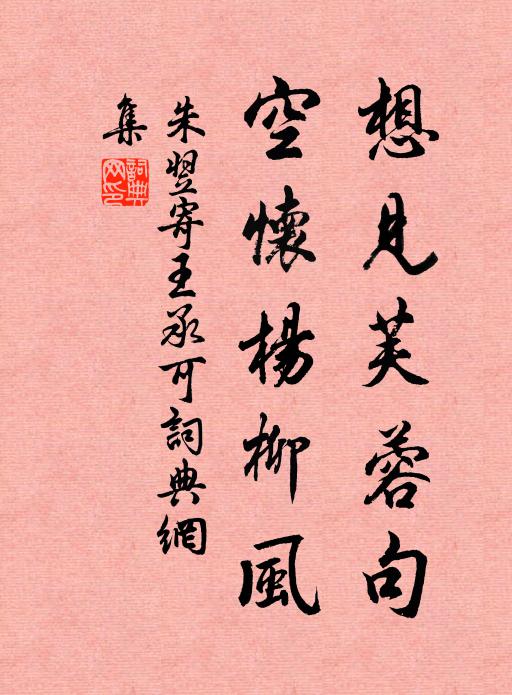 想見芙蓉句
空懷楊柳風
朱翌寄王承可詞典網
集
詞典
网印